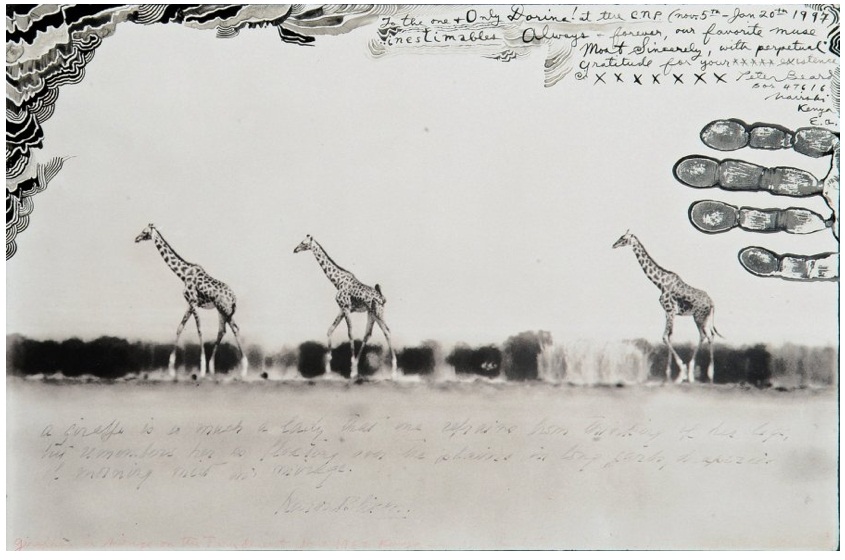 To the one + Only Dorina! at the CNP (nov 5th - Jan 20th 1997)
inestimables Always - forever, our favorite muse
Most Sincerely, with perpetual
gratitude for your xxxxx existence
x x x x x x x Peter Beard
Box 47616
Nairobi
Kenya
E.A.
a giraffe is so much a lady that one refrains from thinking of her legs,
but remembers her as floating over the plains in long garb, draperies
of morning mist or mirage.